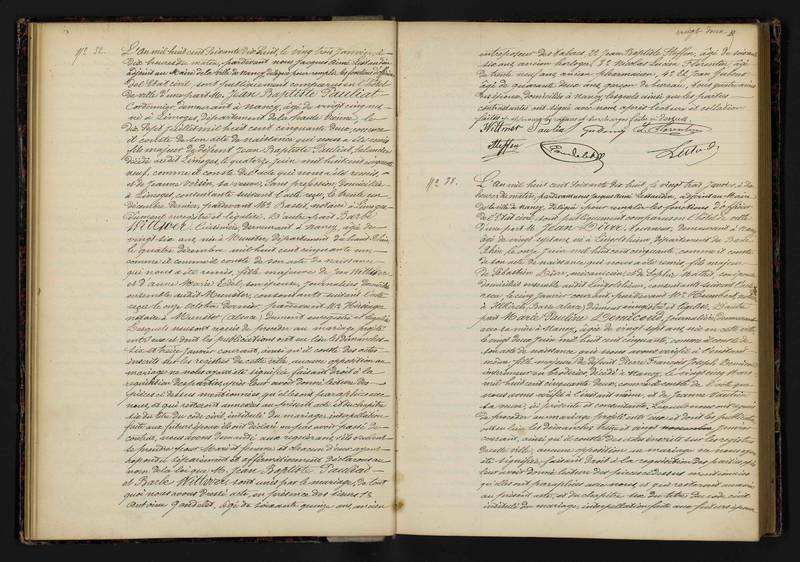 N° 32. L'an mil huit cent soixante dix huit, le vingt trois janvier, à
dix heures du matin, pardevant nous Jacques
adjoint au Maire de la ville de Nancy délégué pour remplir les fonctions d'officier
de l'Etat civil, sont publiquement comparus en l'hôtel
de ville d'une part M. Jean Baptiste Pauliat
Cordonnier, demeurant à Nancy, âgé de vingt cinq ans
né à Limoges, département de la haute Vienne, le
dix sept juillet mil huit cent cinquante deux, comme
il conste de son acte de naissance qui nous a été remis
fils majeur de défunt Jean Baptiste Pauliat,
décédé audit Limoges, le quatorze juin mil huit cent cinquante
neuf, comme il conste de l'acte qui nous a été remis,
et de Jeanne Voisin, sa veuve, sans profession, domiciliée
à Limoges, consentante suivant l'acte reçu, le trente un
décembre dernier, pardevant M. notaire à Limoges
dûment enregistré et légalisé. Et d'autre part Barbe
Willmer, Cuisinière, demeurant à Nancy, âgée de
vingt six ans, née à Munster, département du haut Rhin,
le quatre décembre mil huit cent cinquante un,
comme il conste de son acte de naissance
qui nous a été remis, fille majeure de Jean Willmer
et d'Anne Marie son épouse, journaliers domiciliés
ensemble audit Munster, consentants suivant l'acte
reçu le onze octobre dernier, pardevant M.
notaire à Munster (Alsace) dûment enregistré et légalisé
Lesquels nous ont requis de procéder au mariage projeté
entre eux et dont les publications ont eu lieu les dimanches
six et treize janvier courant, ainsi qu'il conste des actes
inscrits sur les registres de cette ville, aucune opposition au
mariage ne nous ayant été signifiée, faisant droit à la
réquisition des parties, après leur avoir donné lecture des
pièces ci dessus mentionnées, qu'elles ont paraphées avec
nous, et qui resteront annexées au présent acte, et du chapitre
six du titre du code civil, intitulé du mariage, interpellation
faite aux futurs époux ils ont déclaré n'avoir pas passé de
contrat, nous avons demandé aux requérants, s'ils veulent
se prendre pour Mari et femme, et chacun d'eux ayant
répondu séparément et affirmativement déclarons au
nom de la loi que M. Jean Baptiste Pauliat
et Barbe Willmer, sont unis par le mariage, de tout
quoi nous avons dressé acte, en présence des sieurs 1°
Antoine Gandelet, âgé de soixante quinze ans, ancien
vingt deux
entreposeur des tabacs, 2° Jean Baptiste Steffen, âgé de soixante
six ans ancien horloger, 3° Nicolas Lucien Florentin, âgé
de trente neuf ans, ancien pharmacien, 4° et Jean
âgé de quarante deux ans, garçon de bureau, tous quatre amis
des époux, domiciliés à Nancy, témoins ainsi que les parties
contractantes ont signé avec nous après lecture et collation
faites
Willmer Pauliat Florentin
Steffen
N° 33. L'an mil huit cent soixante dix huit, le vingt trois janvier, à dix
heures du matin, pardevant nous Jacques adjoint au Maire
de la ville de Nancy, délégué pour remplir les fonctions d'officier
de l'Etat civil, sont publiquement comparus en l'hôtel de ville
d'une part M. Jean demeurant à Nancy
âgé de vingt sept ans, né à département du Bas
Rhin, le onze juin mil huit cent cinquante, comme il conste
de son acte de naissance, qui nous a été remis, fils majeur
de Sébastien mécanicien, et de Sophie son épouse
domiciliés ensemble audit consentants suivant l'acte
reçu, le cinq janvier courant, pardevant M. Humbert, notaire
à (Basse Alsace) dûment enregistré et légalisé. Et d'autre
part Marie Pauline journalière, demeurant
avec sa mère à Nancy, âgée de vingt sept ans, née en cette ville
le vingt deux juin mil huit cent cinquante, comme il conste de
son acte de naissance, que nous avons vérifié à l'instant
même, fille majeure de défunt Pierre François Joseph
imprimeur en broderies, décédé à Nancy, le vingt cinq
mil huit cent cinquante deux, comme il conste de l'acte que
nous avons vérifié à l'instant même, et de Jeanne
sa veuve, ci présente et consentante, Lesquels nous ont requis
de procéder au mariage projeté entre eux et dont les publications
ont eu lieu les dimanches treize et vingt janvier
courant, ainsi qu'il conste des actes inscrits sur les registres
de cette ville, aucune opposition au mariage ne nous ayant
été signifiée, faisant droit à la réquisition des parties, après
leur avoir donné lecture des pièces ci dessus mentionnées
qu'elles ont paraphées avec nous, et qui resteront annexées
au présent acte, et du chapitre six du titre du code civil
intitulé du mariage, interpellation faite aux futurs époux